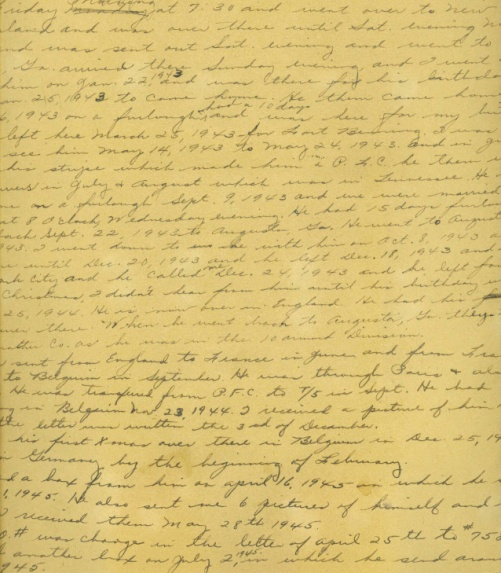 morning
at 7:30 and went over to New
land and was over there until Sat. evening
and was sent out Sat. evening and went to
Ga. arrived there Sunday evening and I went
him on Jan. 22, 1943 and was there for his birthday
25, 1943 to come home. He then came home
1943 on a furlough, had a 10 days and was here for my
left here March 25, 1943 for Fort Benning. I was
see him May 14, 1943 to May 24, 1943. and in
his stripe which made him a P.F.C. he then
in July & August which was in Tennessee. He
on a furlough Sept. 9, 1943 and we were married
at 8 O clock Wednesday evening. He had 15 days furlough
back Sept. 22, 1943 to Augusta, Ga. He went to August
43. I went down to be with him on Oct. 8, 1943
until Dec. 20, 1943 and he left Dec. 18, 1943 and
City and he called me Dec. 24, 1943 and he left for
Christmas, I didn't hear from him until his birthday
25, 1944. He is now over in England. He had his
over there. When he went back to Augusta, Ga. they
Co. as he was in the 10 armed Division.
sent from England to France in June and from
to Belguim in September. He was through Paris &
He was transfured from P.F.C. to T/5 in Sept. He had
in Belguim Nov 23 1944. I received a picture of him
the letter was written the 3rd of December.
his first Xmas over there in Belgium in Dec. 25, 19
Germany by the beginning of February.
a box from him on april 16, 1945 in which he
1945. He also sent me 6 pictures of himself and
I received them May 28th 1945.
# was change in the letter of april 25th to #
another box on July 2, 1945 in which he send
1945.